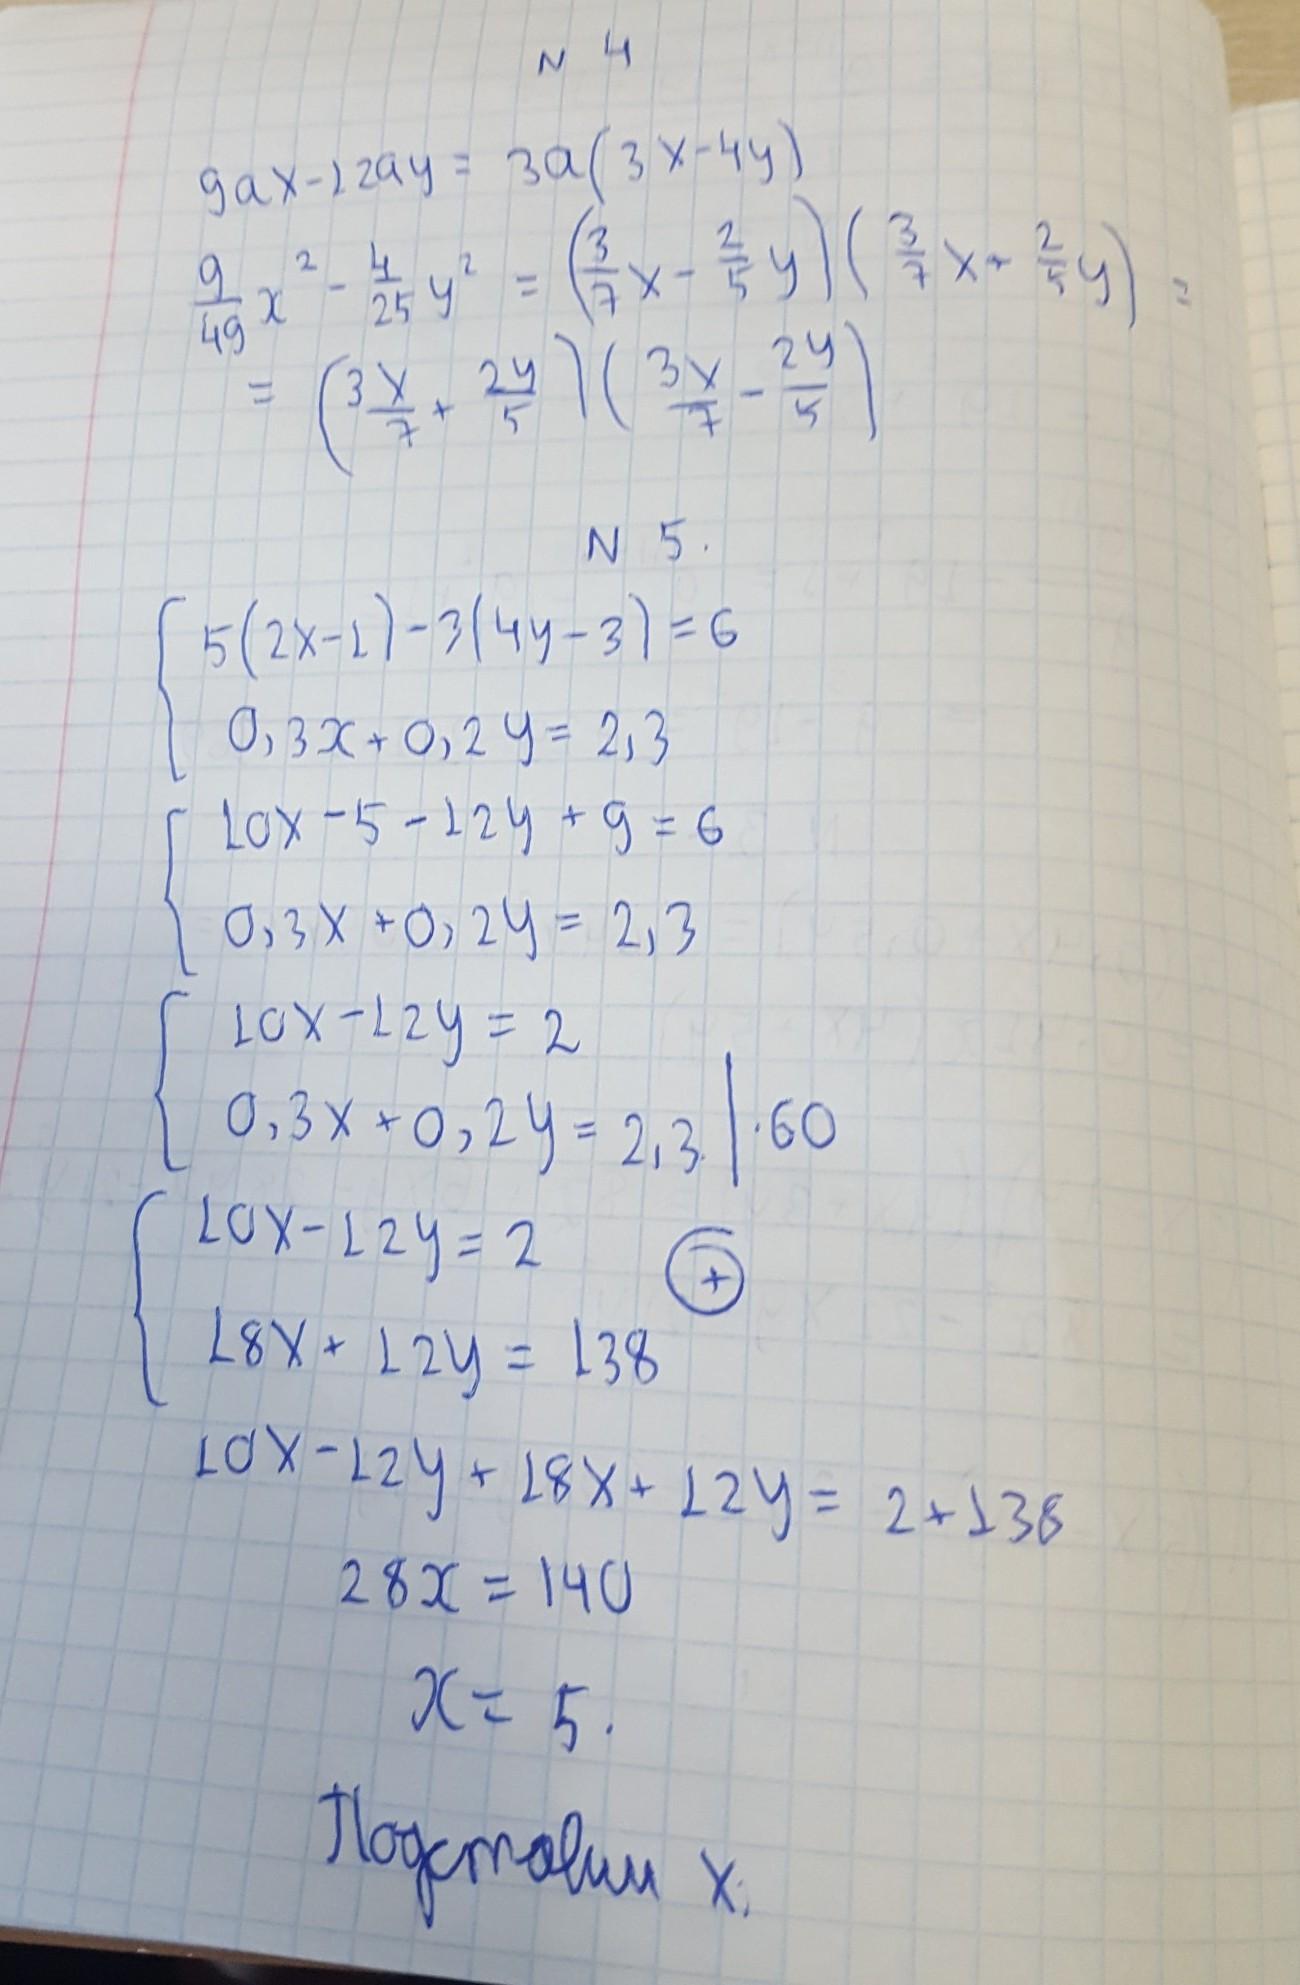 N 4
9ax-12ay = 3a(3x-4y)
9/49 x² - 4/25 y² = (3/7 x - 2/5 y)(3/7 x + 2/5 y) =
= (3x/7 + 2y/5)(3x/7 - 2y/5)
N 5.
{ 5(2x-1)-3(4y-3)=6
0,3x+0,2y=2,3
{ 10x-5-12y+9=6
0,3x+0,2y=2,3
{ 10x-12y=2
0,3x+0,2y=2,3 | ·60
{ 10x-12y=2 (+)
18x+12y=138
10x-12y+18x+12y=2+138
28x=140
x=5.
Подставим x.